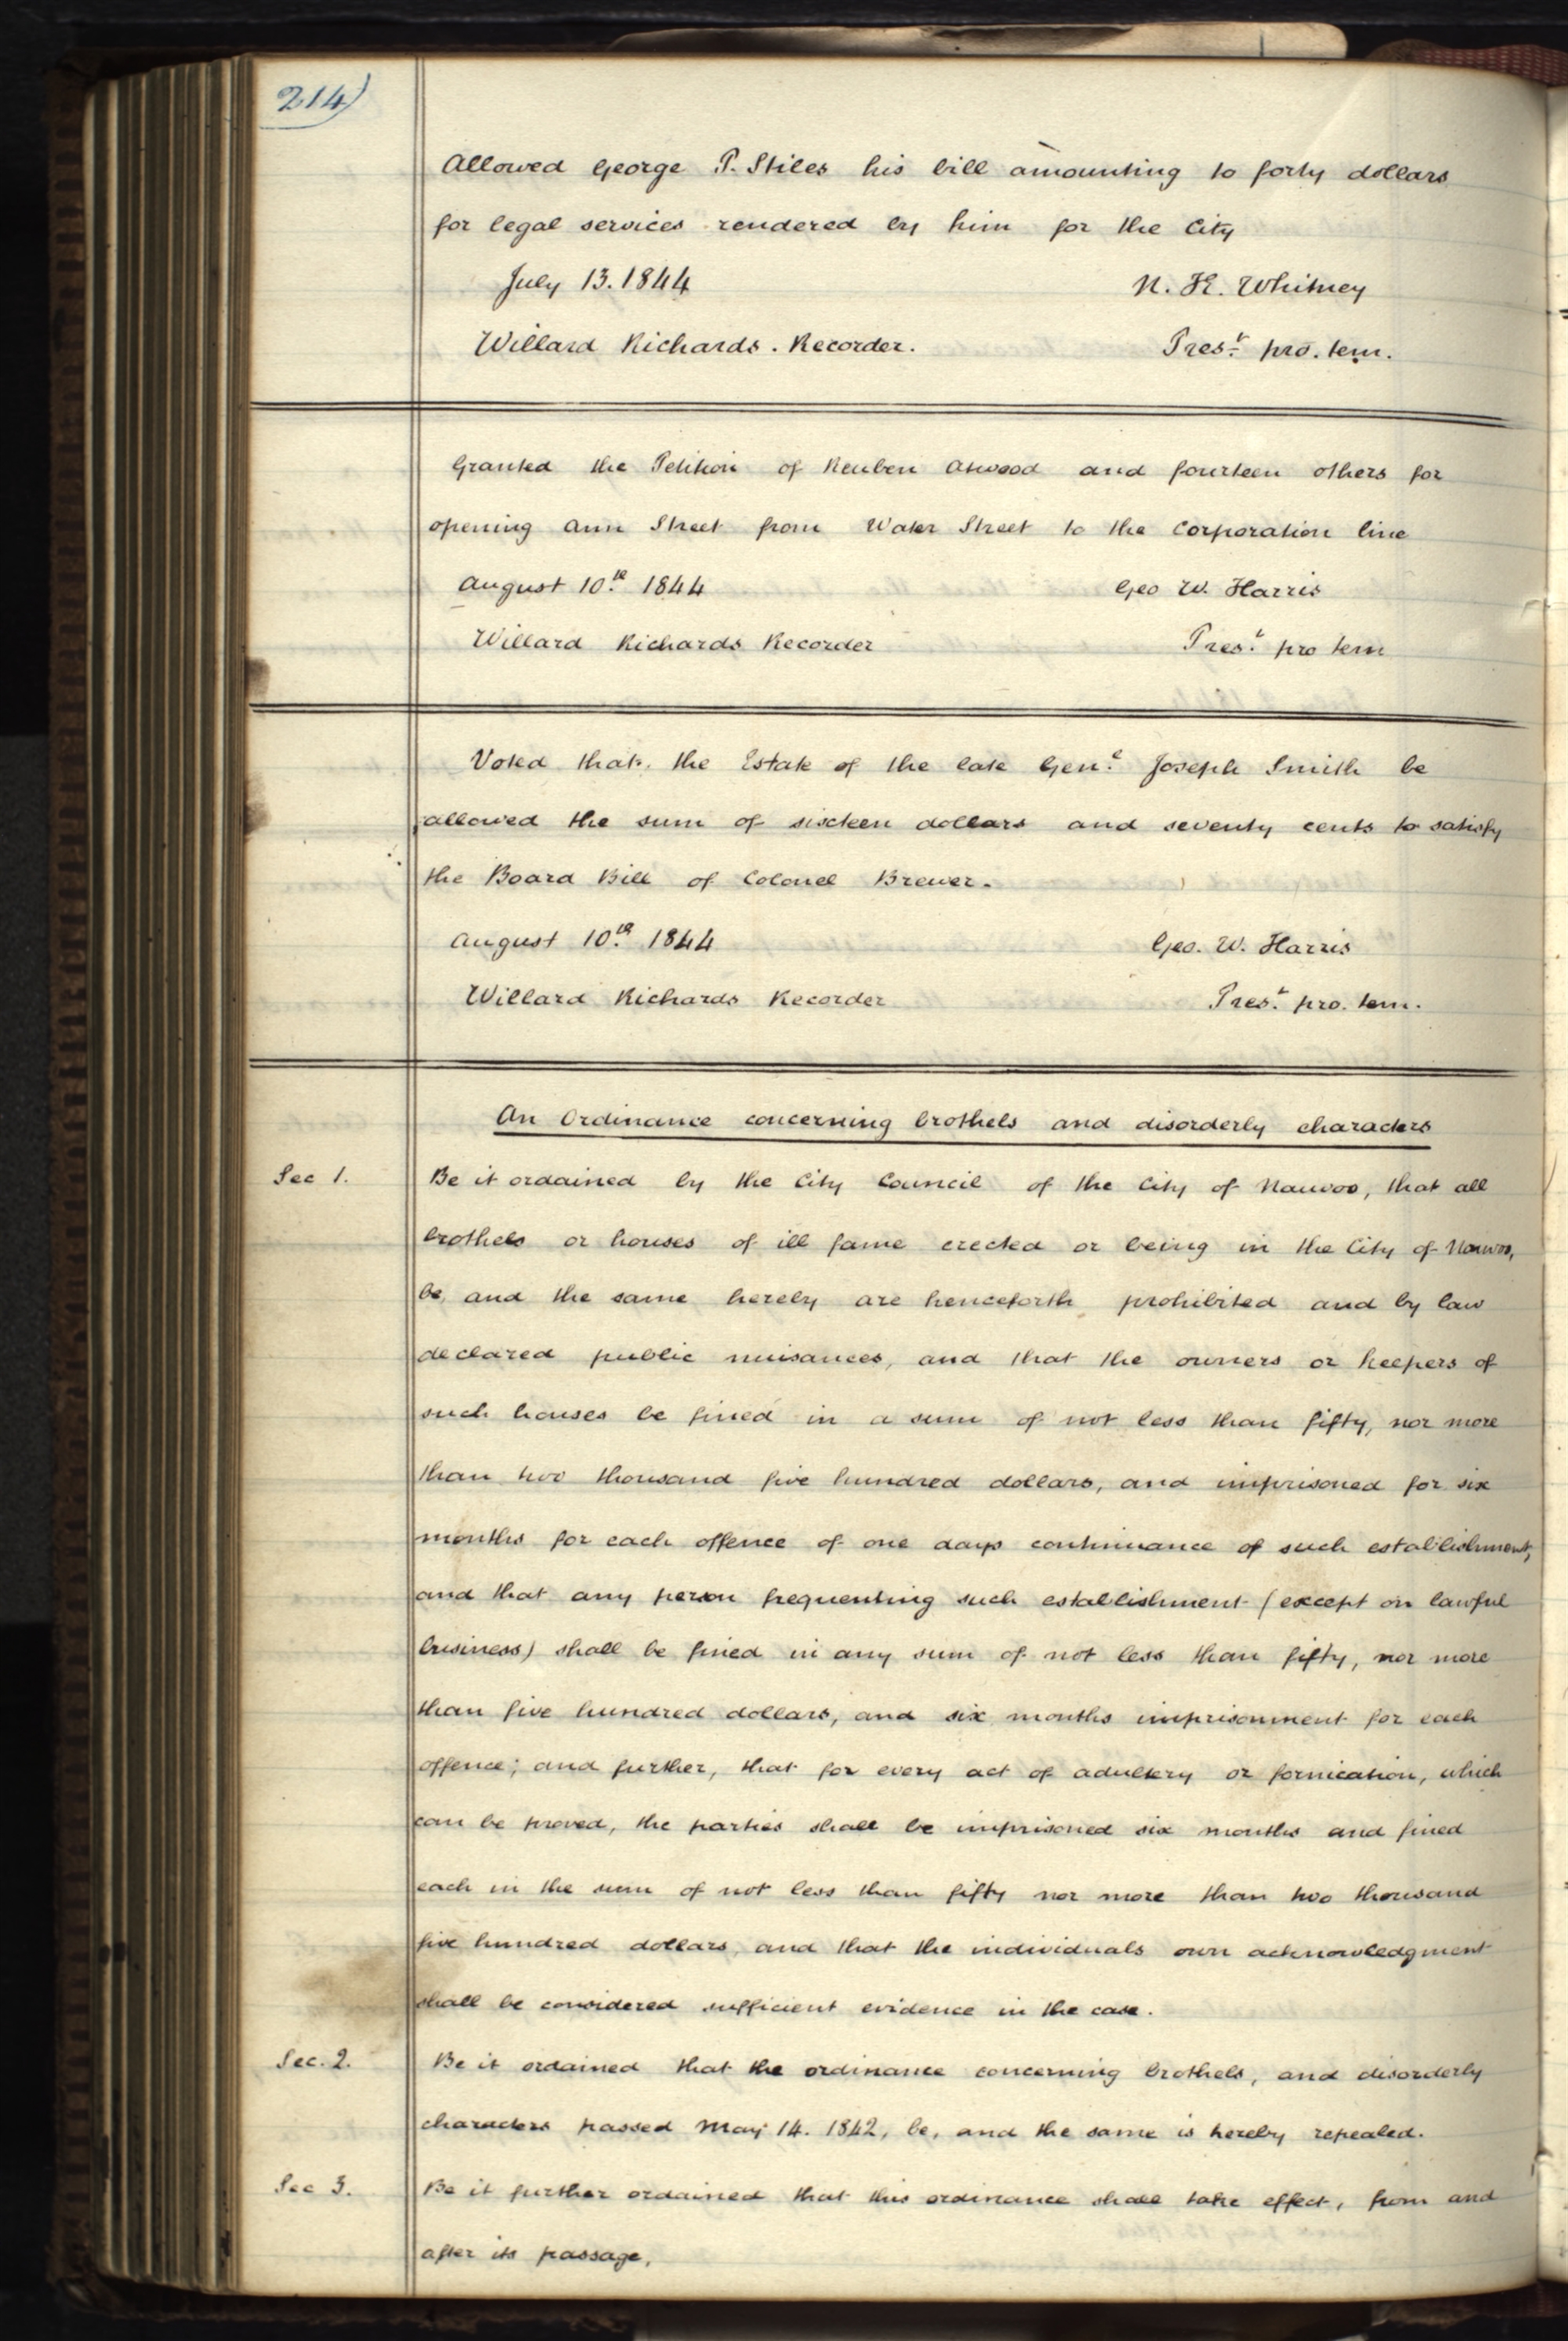 214)
Allowed George P. Stiles his bill amounting to forty dollars
for legal services rendered by him for the City
July 13. 1844 N. K. Whitney
Willard Richards. Recorder. Pres.t pro. tem.
Granted the Petition of Reuben Atwood and fourteen others for
opening Ann Street from Water Street to the Corporation line
August 10.th 1844 Geo W. Harris
Willard Richards Recorder Pres.t pro tem
Voted that the Estate of the late Gen.l Joseph Smith be
allowed the sum of sixteen dollars and seventy cents to satisfy
the Board Bill of Colonel Brewer.
August 10.th 1844 Geo. W. Harris
Willard Richards Recorder Pres.t pro. tem.
An Ordinance concerning brothels and disorderly characters
Sec 1. Be it ordained by the City Council of the City of Nauvoo, that all
brothels or houses of ill fame erected or being in the City of Nauvoo,
be, and the same hereby are henceforth prohibited and by law
declared public nuisances, and that the owners or keepers of
such houses be fined in a sum of not less than fifty, nor more
than two thousand five hundred dollars, and imprisoned for six
months for each offence of one days continuance of such establishment,
and that any person frequenting such establishment (except on lawful
business) shall be fined in any sum of not less than fifty, nor more
than five hundred dollars, and six months imprisonment for each
offence; and further, that for every act of adultery or fornication, which
can be proved, the parties shall be imprisoned six months and fined
each in the sum of not less than fifty nor more than two thousand
five hundred dollars, and that the individuals own acknowledgment
shall be considered sufficient evidence in the case.
Sec. 2. Be it ordained that the ordinance concerning brothels, and disorderly
characters passed May 14. 1842, be, and the same is hereby repealed.
Sec 3. Be it further ordained that this ordinance shall take effect, from and
after its passage,